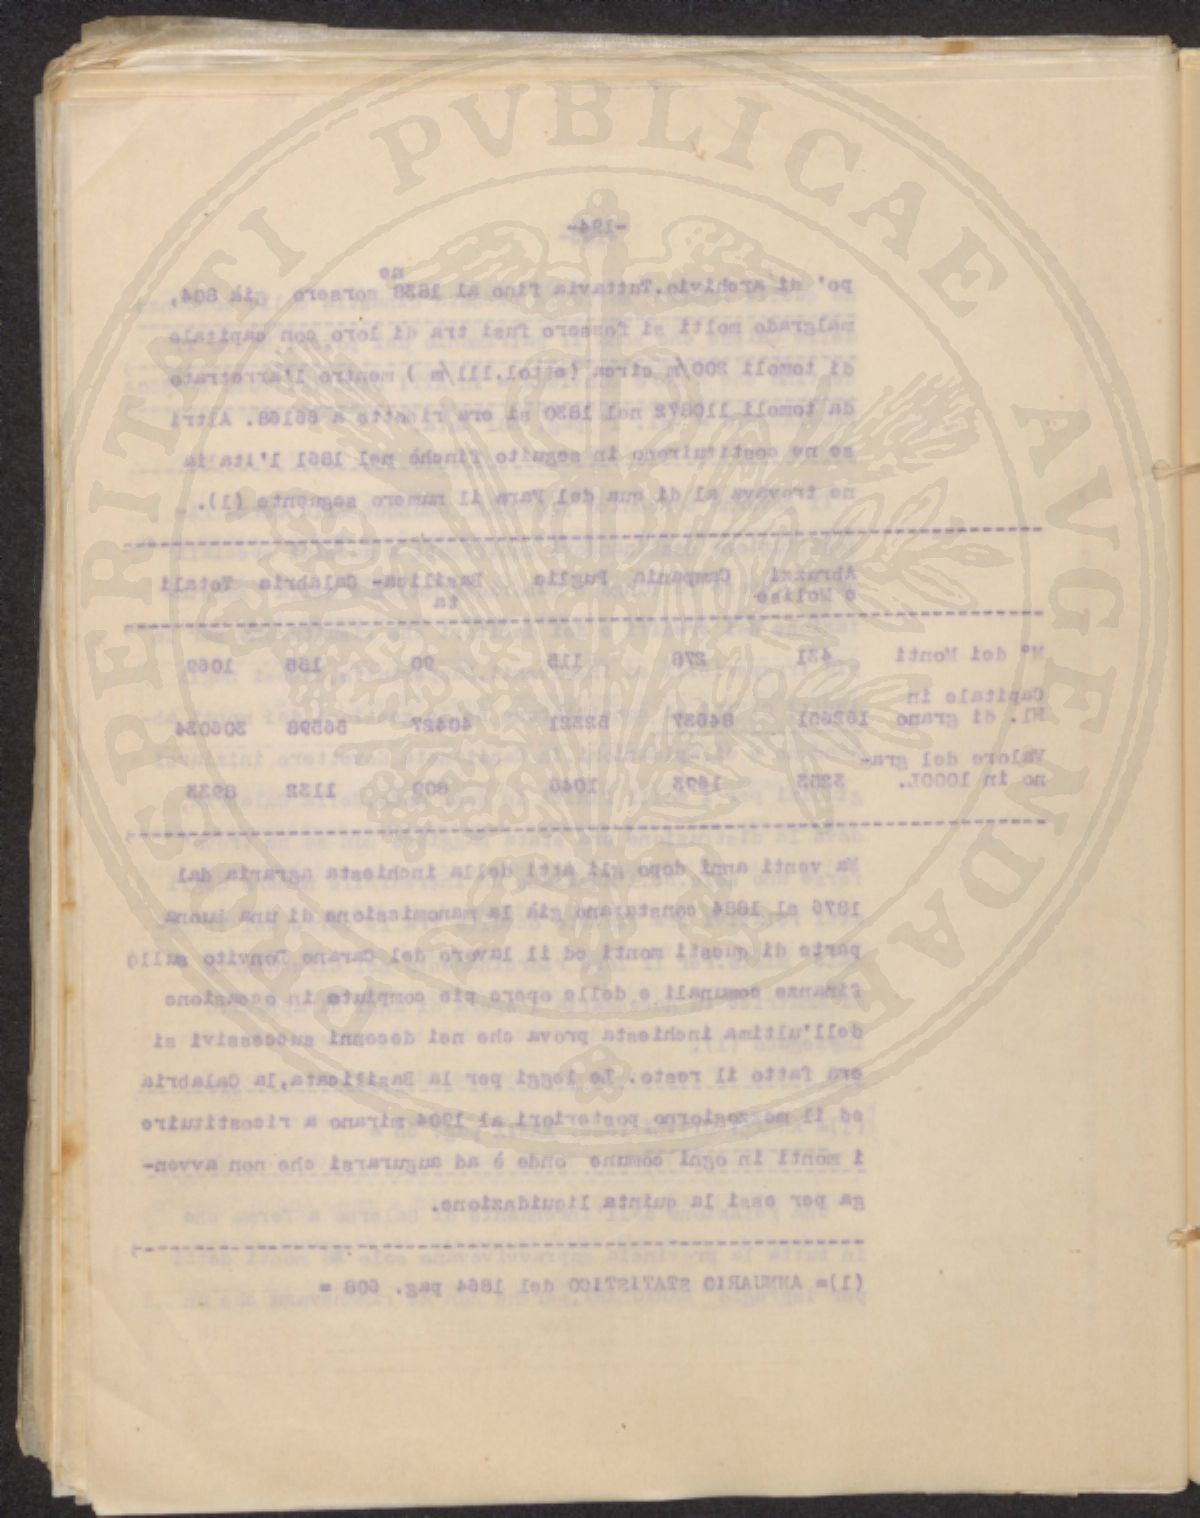 -194-
po' di archivio.Tuttavia fino al 1838 ne sorsero già 804,
malgrado molti si fossero fusi tra di loro con capitale
di tomoli 200/m circa (ettol.111/m ) mentre l'arretrato
da tomoli 110872 nel 1830 si era ridotto a 66168. Altri
se ne costituirono in seguito finchè nel 1861 l'Italia
ne trovava al di qua del Faro il numero seguente (1).
Abruzzi e Molise Campania Puglie Basilica-ta Calabria Totali
N° dei Monti 431 276 115 90 1069
Capitale in
Hl. di grano 84637 52321 40427 56598 306034
Valore del gra-
no in 1000L. 3253 1693 1046 809 1132 8933
Ma venti anni dopo gli atti della inchiesta agraria dal
1876 al 1884 constatano già la manomissione di una buona
parte di questi monti ed il lavoro del Carano Donvito sulle
finanze comunali e delle opere pie compiuto in occasione
dell'ultima inchiesta prova che nei decenni successivi si
era fatto il resto. Le leggi per la Basilicata,la Calabria
ed il mezzogiorno posteriori al 1904 mirano a ricostituire
i monti in ogni comune onde è ad augurarsi che non avven-
ga per essi la quinta liquidazione.
(1)= ANNUARIO STATISTICO del 1864 pag. 608 =
PROSPERITATI PVBLICAE AVGENDAE